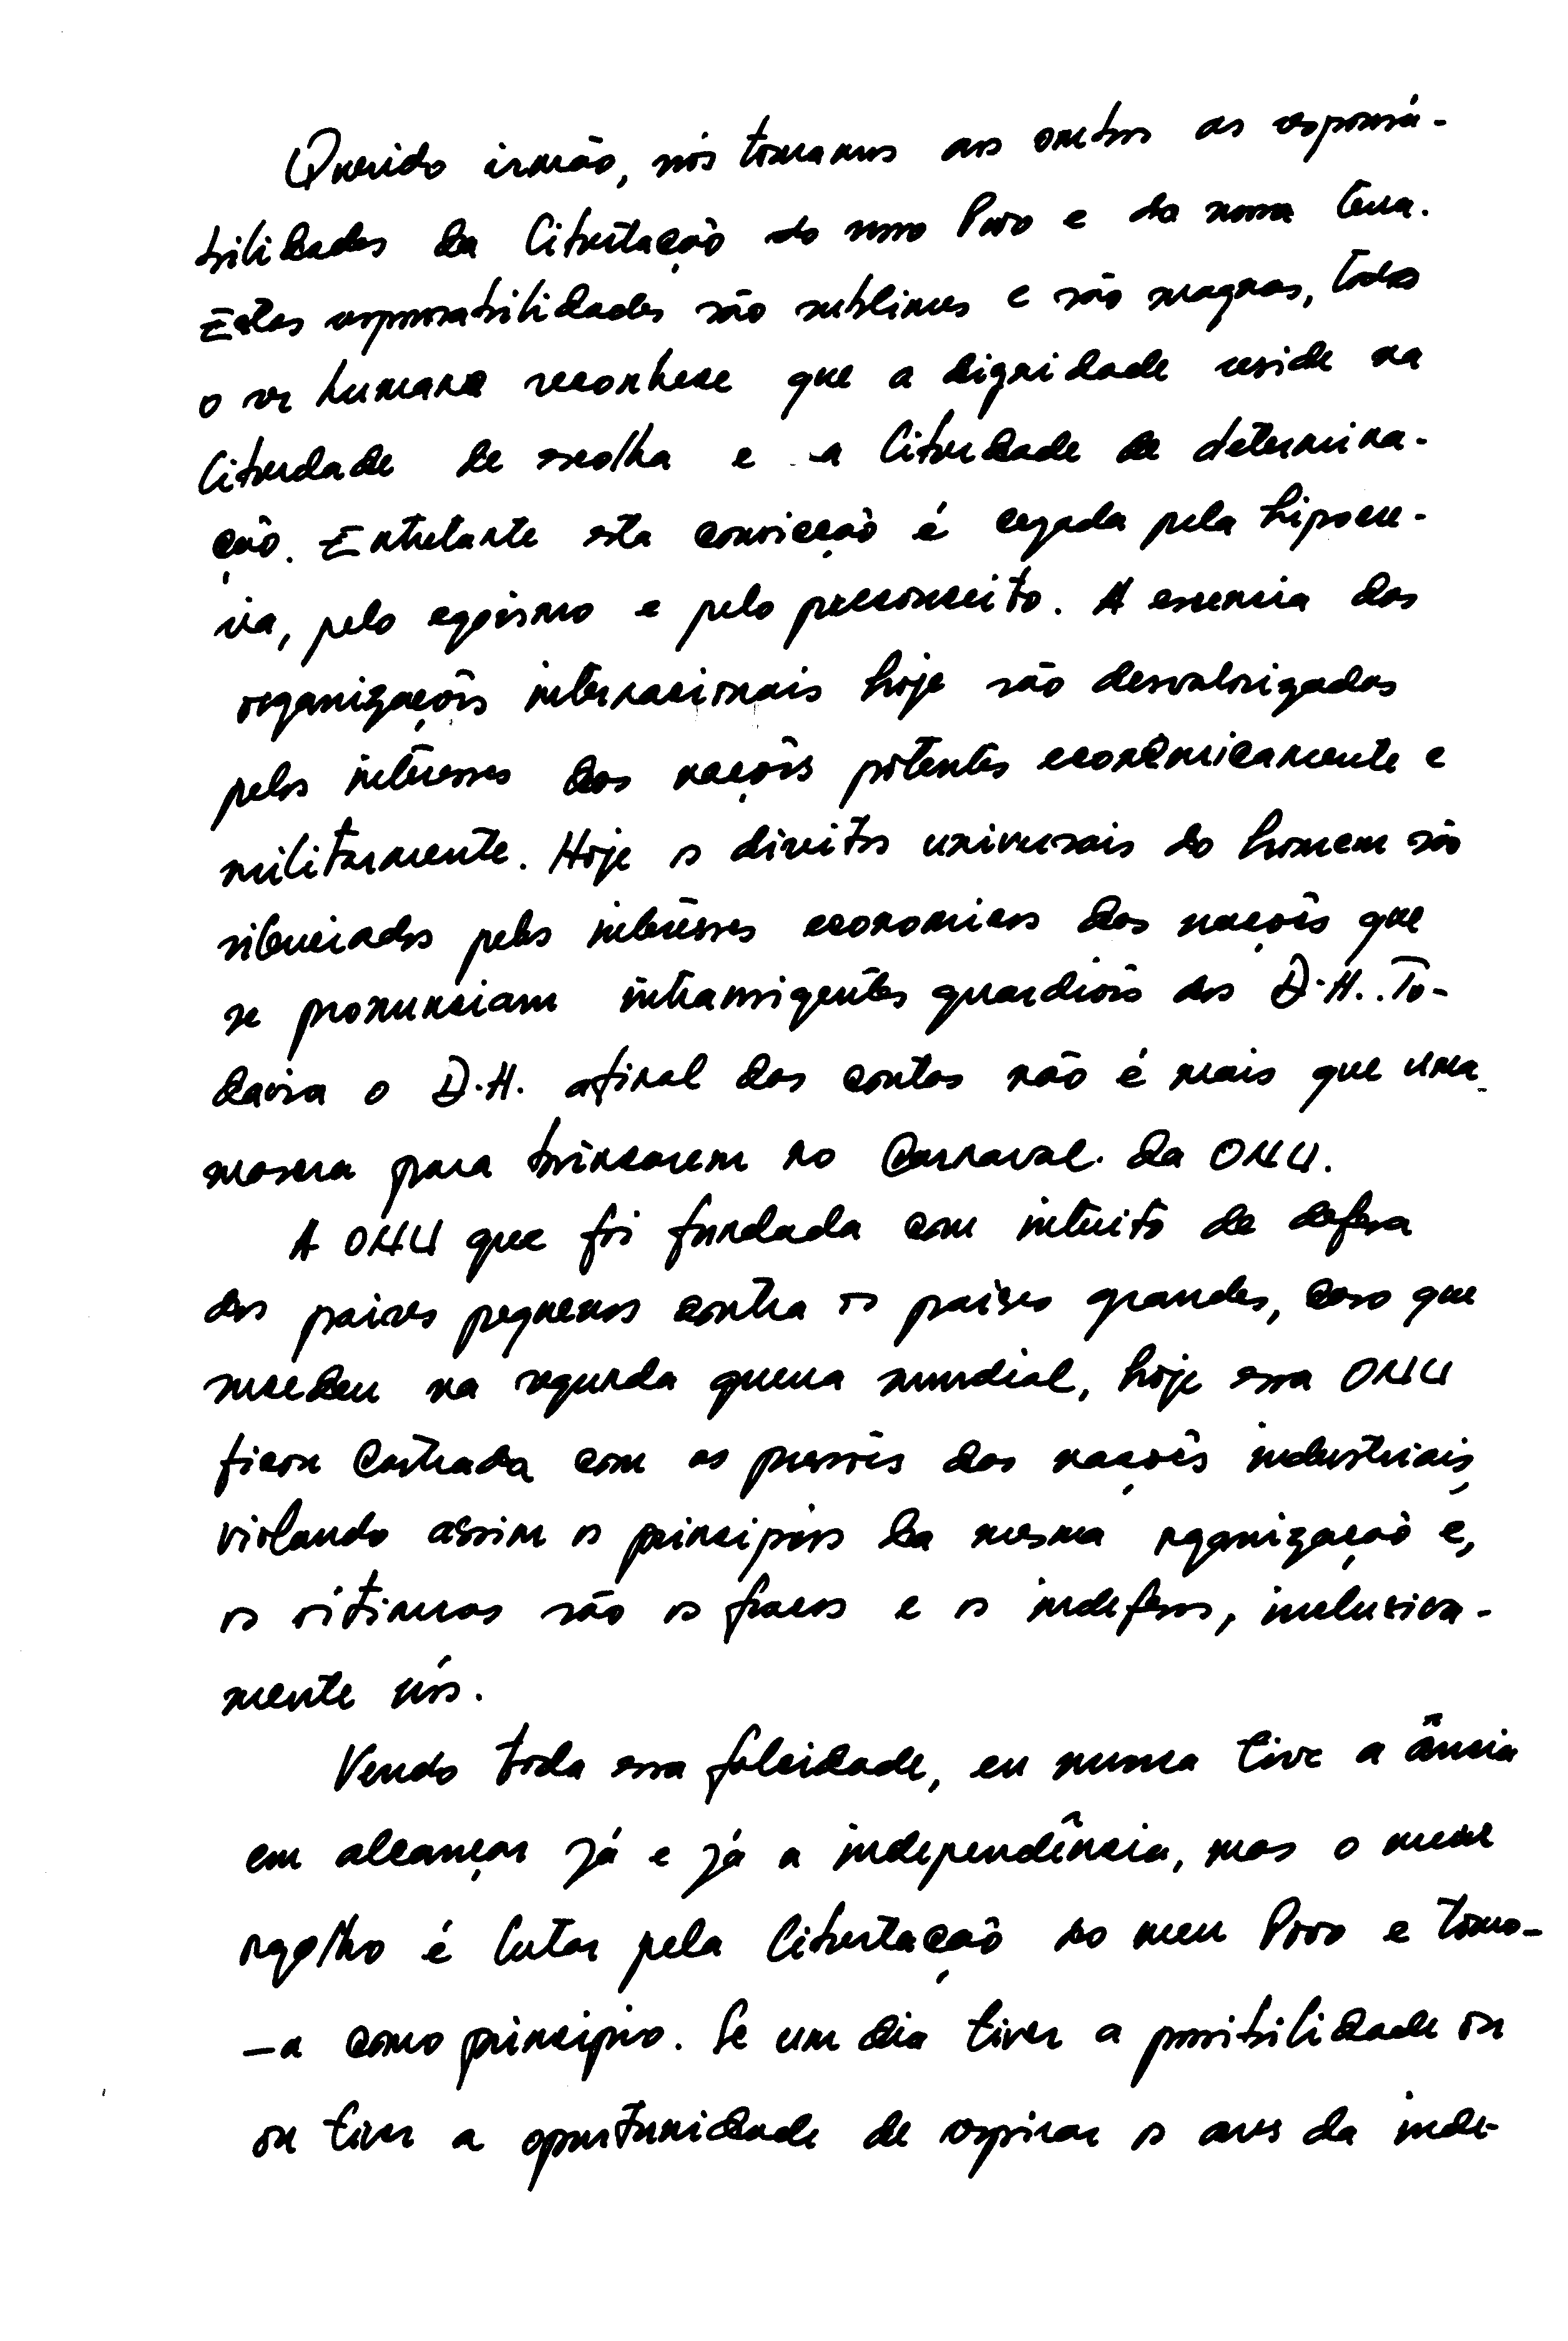 Querido irmão, nós tomamos aos ombros as responsa-
bilidades da Libertação do nosso Povo e da nossa terra.
Estas responsabilidades são sublimes e são magnas, todo
o ser humano reconhece que a dignidade reside na
liberdade de escolha e a liberdade de determina-
ção. Entretante esta convicção é cegada pela hipocre-
sia, pelo egoismo e pelo preconceito. A essencia das
organizações internacionais hoje são desvalorizadas
pelos interesses das nações potentes económicamente e
militarmente. Hoje os direitos universais do homem são
silenciados pelos interesses economicos das nações que
se pronunciam intransigentes guardiões dos D.H.. To-
davia o D.H. afinal das contas não é mais que uma
mascra para brincarem no Carnaval da ONU.
A ONU que foi fundada com intuito de defesa
dos paises pequenos contra os paises grandes, caso que
sucedeu na segunda guerra mundial, hoje essa ONU
ficou Castrada com as pressões das nações industriais,
violando assim os principios da mesma organização e,
os vitimas são os fracos e os indefesos, inclusiva-
mente nós.
Vendo toda essa falsidade, eu nunca tive a ância
em alcançar já e já a independência, mas o meu
orgolho é lutar pela Libertação do meu Povo e tomo-
-a como principio. Se um dia tiver a possibilidade ou
ou tiver a oportunidade de respirar os ares da inde-